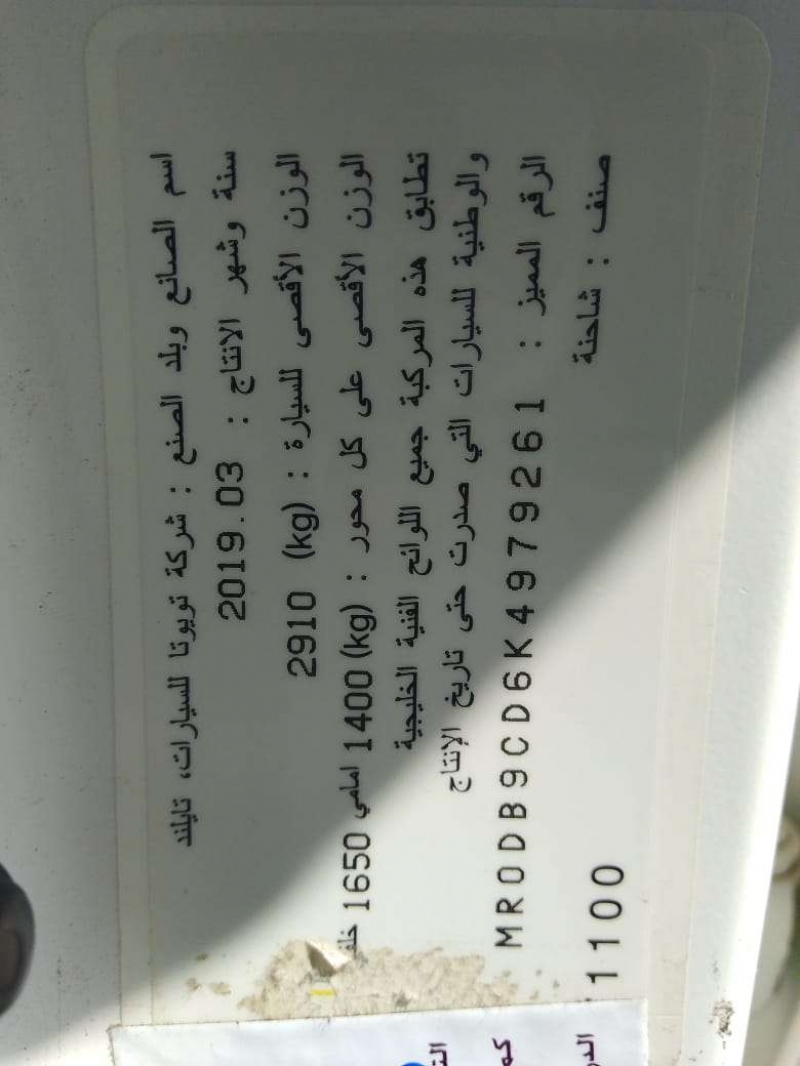 اسم الصانع وبلد الصنع : شركة تويوتا للسيارات، تايلند
سنة وشهر الانتاج : 2019.03
الوزن الأقصى للسيارة : 2910 (kg)
الوزن الأقصى على كل محور : (kg) 1400 امامي 1650
تطابق هذه المركبة جميع اللوائح الفنية الخليجية
والوطنية للسيارات التي صدرت حتى تاريخ الإنتاج
الرقم المميز : MR0DB9CD6K4979261
صنف : شاحنة
1100